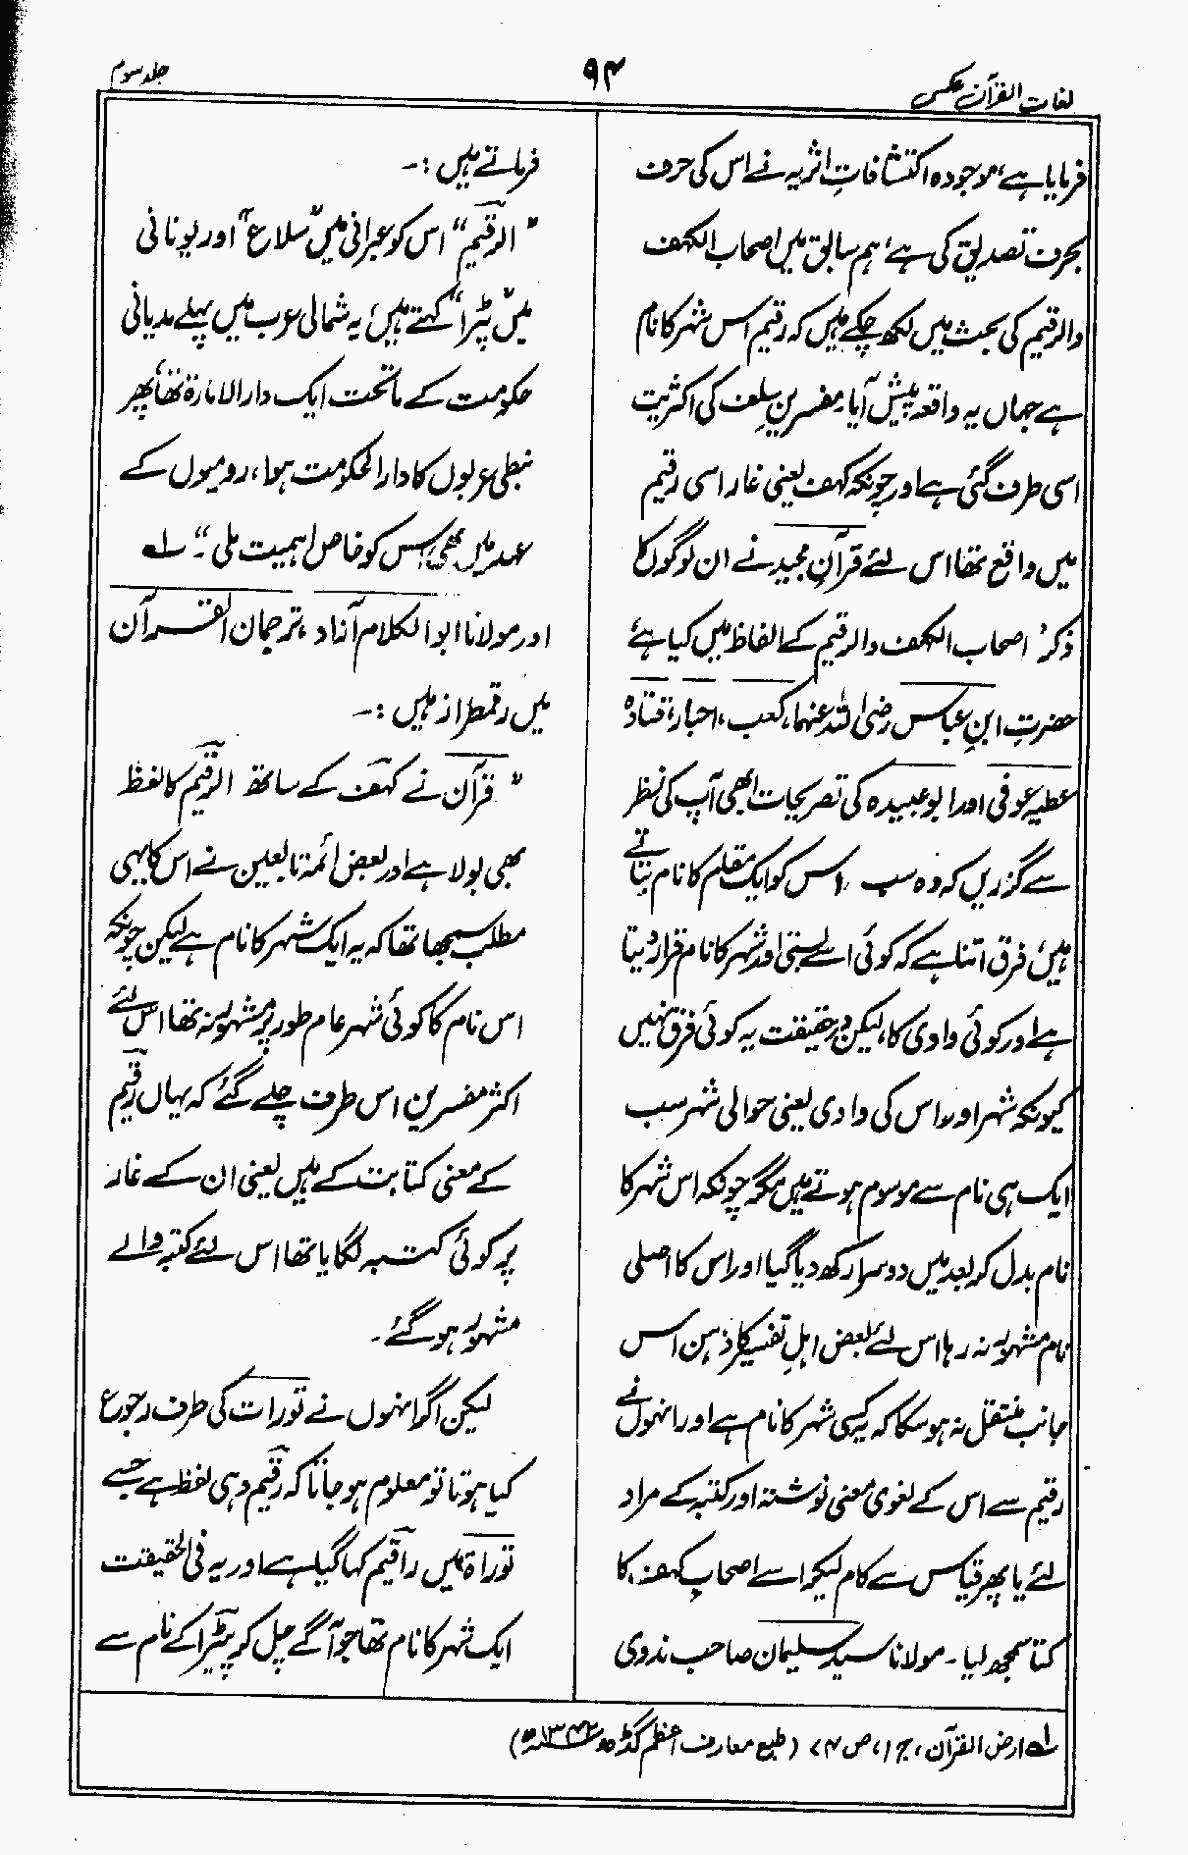 لغات القرآن عکسی
۹۴
جلد سوم
فرمایا ہے، موجودہ اکتشافاتِ اثریہ نے اس کی حرف
بحرف تصدیق کی ہے، ہم سابق میں اصحاب الکہف
والرقیم کی بحث میں لکھ چکے ہیں کہ رقیم اس شہر کا نام
ہے جہاں یہ واقعہ پیش آیا، مفسرینِ سلف کی اکثریت
اسی طرف گئی ہے اور چونکہ کہف یعنی غار اسی رقیم
میں واقع تھا اس لئے قرآنِ مجید نے ان لوگوں کا
ذکر، اصحاب الکہف والرقیم کے الفاظ میں کیا ہے،
حضرت ابنِ عباس رضی اللہ عنہما، کعب، احبار، قتادہ
عطیہ عوفی اور ابوعبیدہ کی تصریحات ابھی آپ کی نظر
سے گزریں کہ وہ سب اس کو ایک مقام کا نام بتاتے
ہیں، فرق اتنا ہے کہ کوئی اسے بستی اور شہر کا نام قرار دیتا
ہے اور کوئی وادی کا، لیکن درحقیقت یہ کوئی فرق نہیں
کیونکہ شہر اور اس کی وادی یعنی حوالی شہر سب
ایک ہی نام سے موسوم ہوتے ہیں مگر چونکہ اس شہر کا
نام بدل کر بعد میں دوسرا رکھ دیا گیا اور اس کا اصلی
نام مشہور نہ رہا اس لئے بعض اہلِ تفسیر کا ذہن اس
جانب منتقل نہ ہوسکا کہ یہ کسی شہر کا نام ہے اور انہوں نے
رقیم سے اس کے لغوی معنی نوشتہ اور کتبہ کے مراد
لئے یا پھر قیاس سے کام لیکر اسے اصحاب کہف کا
کتا سمجھ لیا۔ مولانا سید سلیمان صاحب ندوی
فرماتے ہیں :۔
" الرقیم" اس کو عبرانی میں "سلاع" اور یونانی
میں "پٹرا" کہتے ہیں، یہ شمالی عرب میں پہلے مدیانی
حکومت کے ماتحت ایک دارالامارۃ تھا، پھر
نبطی عربوں کا دارالحکومت ہوا، رومیوں کے
عہد میں بھی اس کو خاص اہمیت ملی۔" لہ
اور مولانا ابوالکلام آزاد، ترجمان القرآن
میں رقمطراز ہیں :۔
" قرآن نے کہف کے ساتھ الرقیم کا لفظ
بھی بولا ہے اور بعض ائمۂ تابعین نے اس کا یہی
مطلب سمجھا تھا کہ یہ ایک شہر کا نام ہے لیکن چونکہ
اس نام کا کوئی شہر عام طور پر مشہور نہ تھا اس لئے
اکثر مفسرین اس طرف چلے گئے کہ یہاں رقیم
کے معنی کتابت کے ہیں یعنی ان کے غار
پر کوئی کتبہ لگایا تھا اس لئے کتبہ والے
مشہور ہوگئے۔
لیکن اگر انہوں نے تورات کی طرف رجوع
کیا ہوتا تو معلوم ہو جاتا کہ رقیم وہی لفظ ہے جسے
توراۃ میں راقیم کہا گیا ہے اور یہ فی الحقیقت
ایک شہر کا نام تھا جو آگے چل کر پیٹرا کے نام سے
لہ ارض القرآن، ج ۱، ص ۷۴ (طبع معارف اعظم گڈھ ۱۳۴۲ھ)